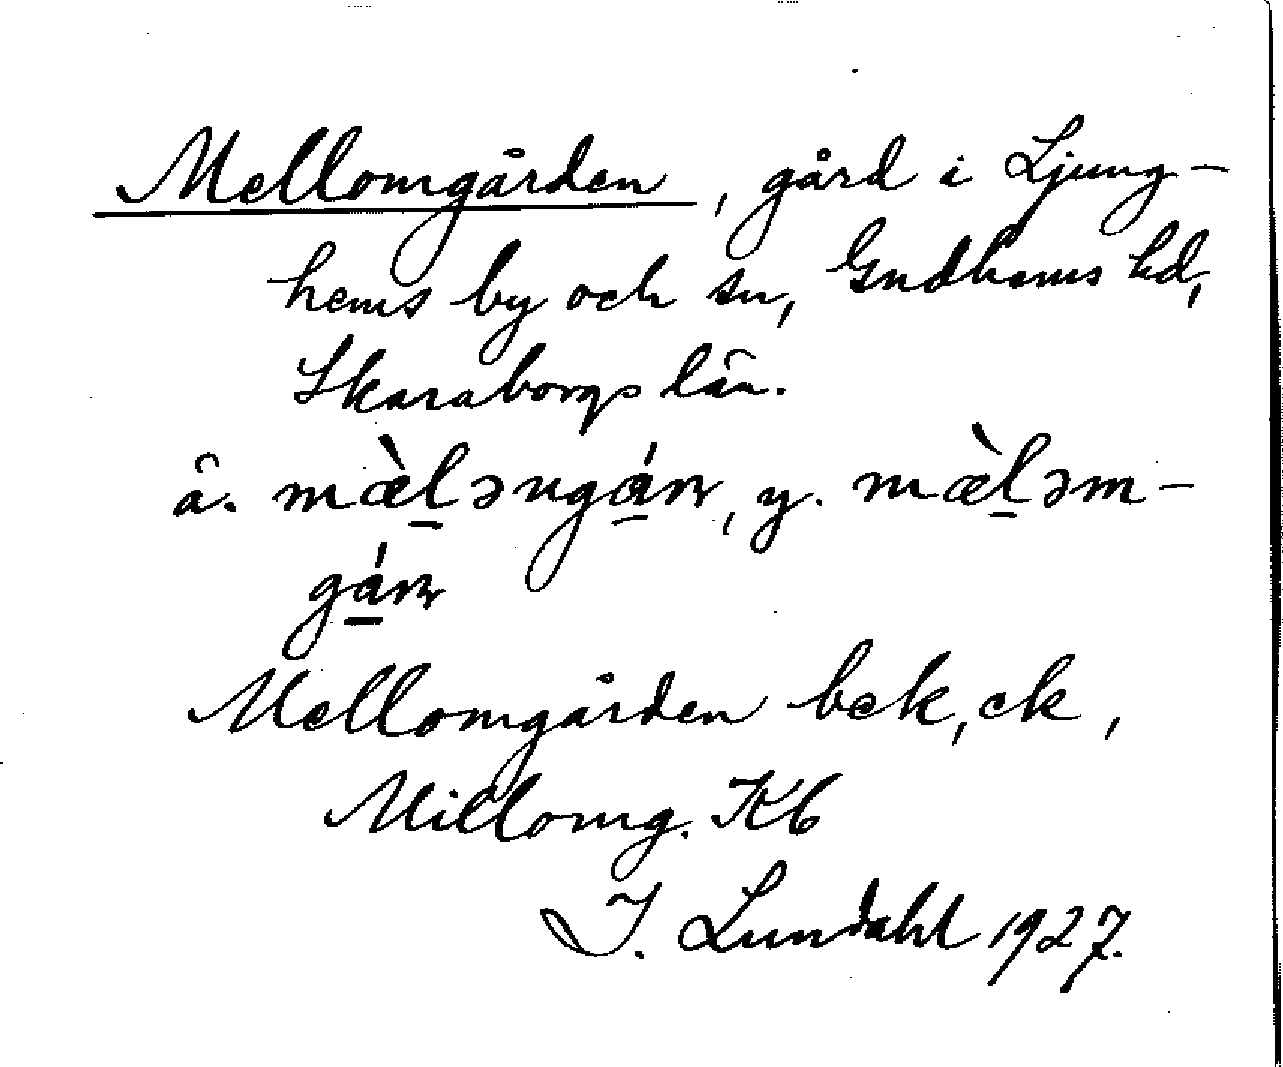 Mellomgården, gård i Ljung-
hems by och sn, Gudhems hd,
Skaraborgs län.
ä. mæ̀l̠əngá̠ɳ, y. mæ̀l̠əm-
gá̠ɳ
Mellomgården bek, ek,
Millomg. Kb
I. Lundahl 1927.